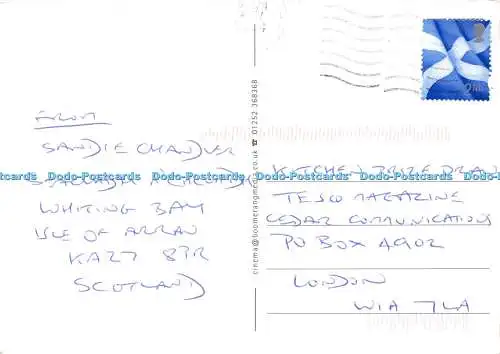 FROM
SANDIE CHANDLER
WHITING BAY
ISLE OF ARRAN
KA27 8PR
SCOTLAND
cinema@boomerangmedia.co.uk ☎ 01252 368368
KITCHEN PRIZE DRAW
TESCO MAGAZINE
CEDAR COMMUNICATIONS
PO BOX 4902
LONDON
W1A 7LA
Dodo-Postcards Dodo-Postcards Dodo-Postcards Dodo-Postcards Dodo-Postcards